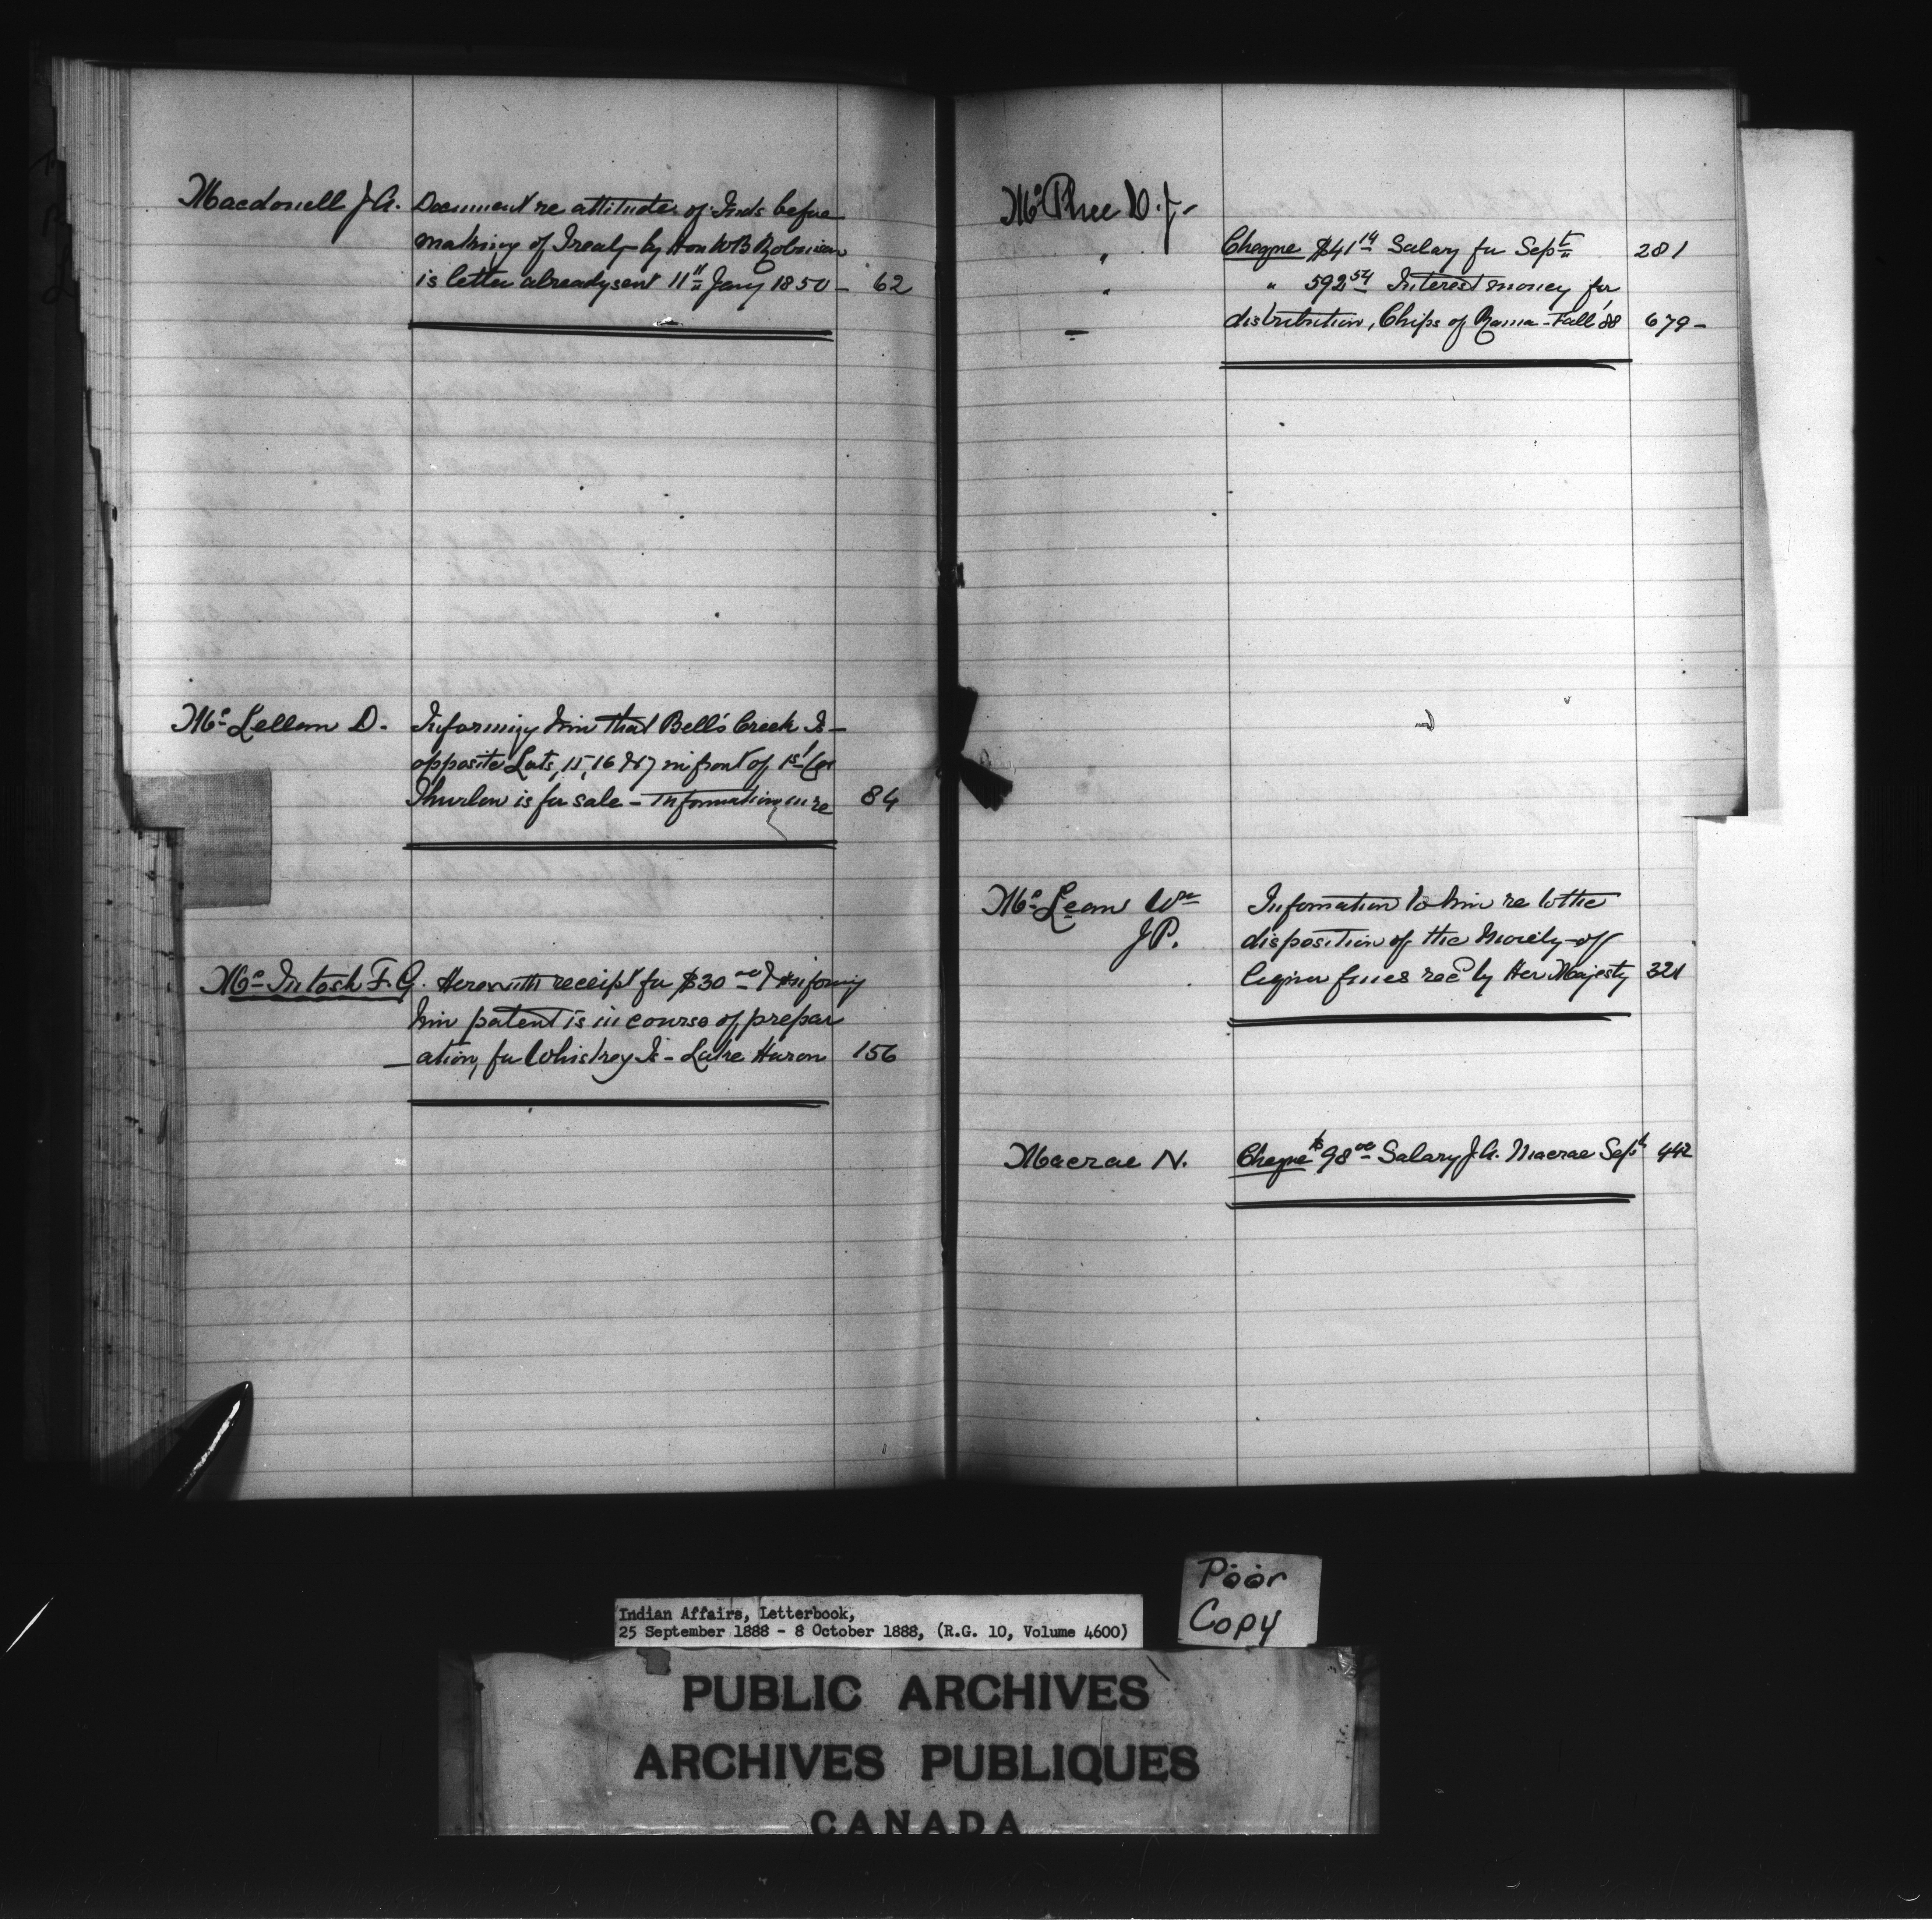 Macdonell J. A. Document re attitudes of Inds before
making of Treaty by Hon W B Robinson
is letter already sent 11" Jany 1850 - 62
Mc Lellan D. Informing him that Bell's Creek Is -
opposite Lots, 15, 16 & 17 in front of 1st Con
Thurlow is for sale - Information in re 84
Mc Intosh F. G. Herewith receipt for $30 00 & informing
him patent is in course of prepar
ation, for Whiskey Is - Lake Huron 156
Mc Phee D. J.
" Cheque $41 14 Salary for Sept 281
" " 592 54 Interest money for
distribution, Chips of Rama - Fall '88 679 -
Mc Lean Wm Information to him re to the
J P. disposition of the Moiety of
liquor fines recd by Her Majesty 321
Macrae N. Cheque $98 00 Salary J. A. Macrae Sept 442
Poor
Copy
Indian Affairs, Letterbook,
25 September 1888 - 8 October 1888, (R.G. 10, Volume 4600)
PUBLIC ARCHIVES
ARCHIVES PUBLIQUES
CANADA